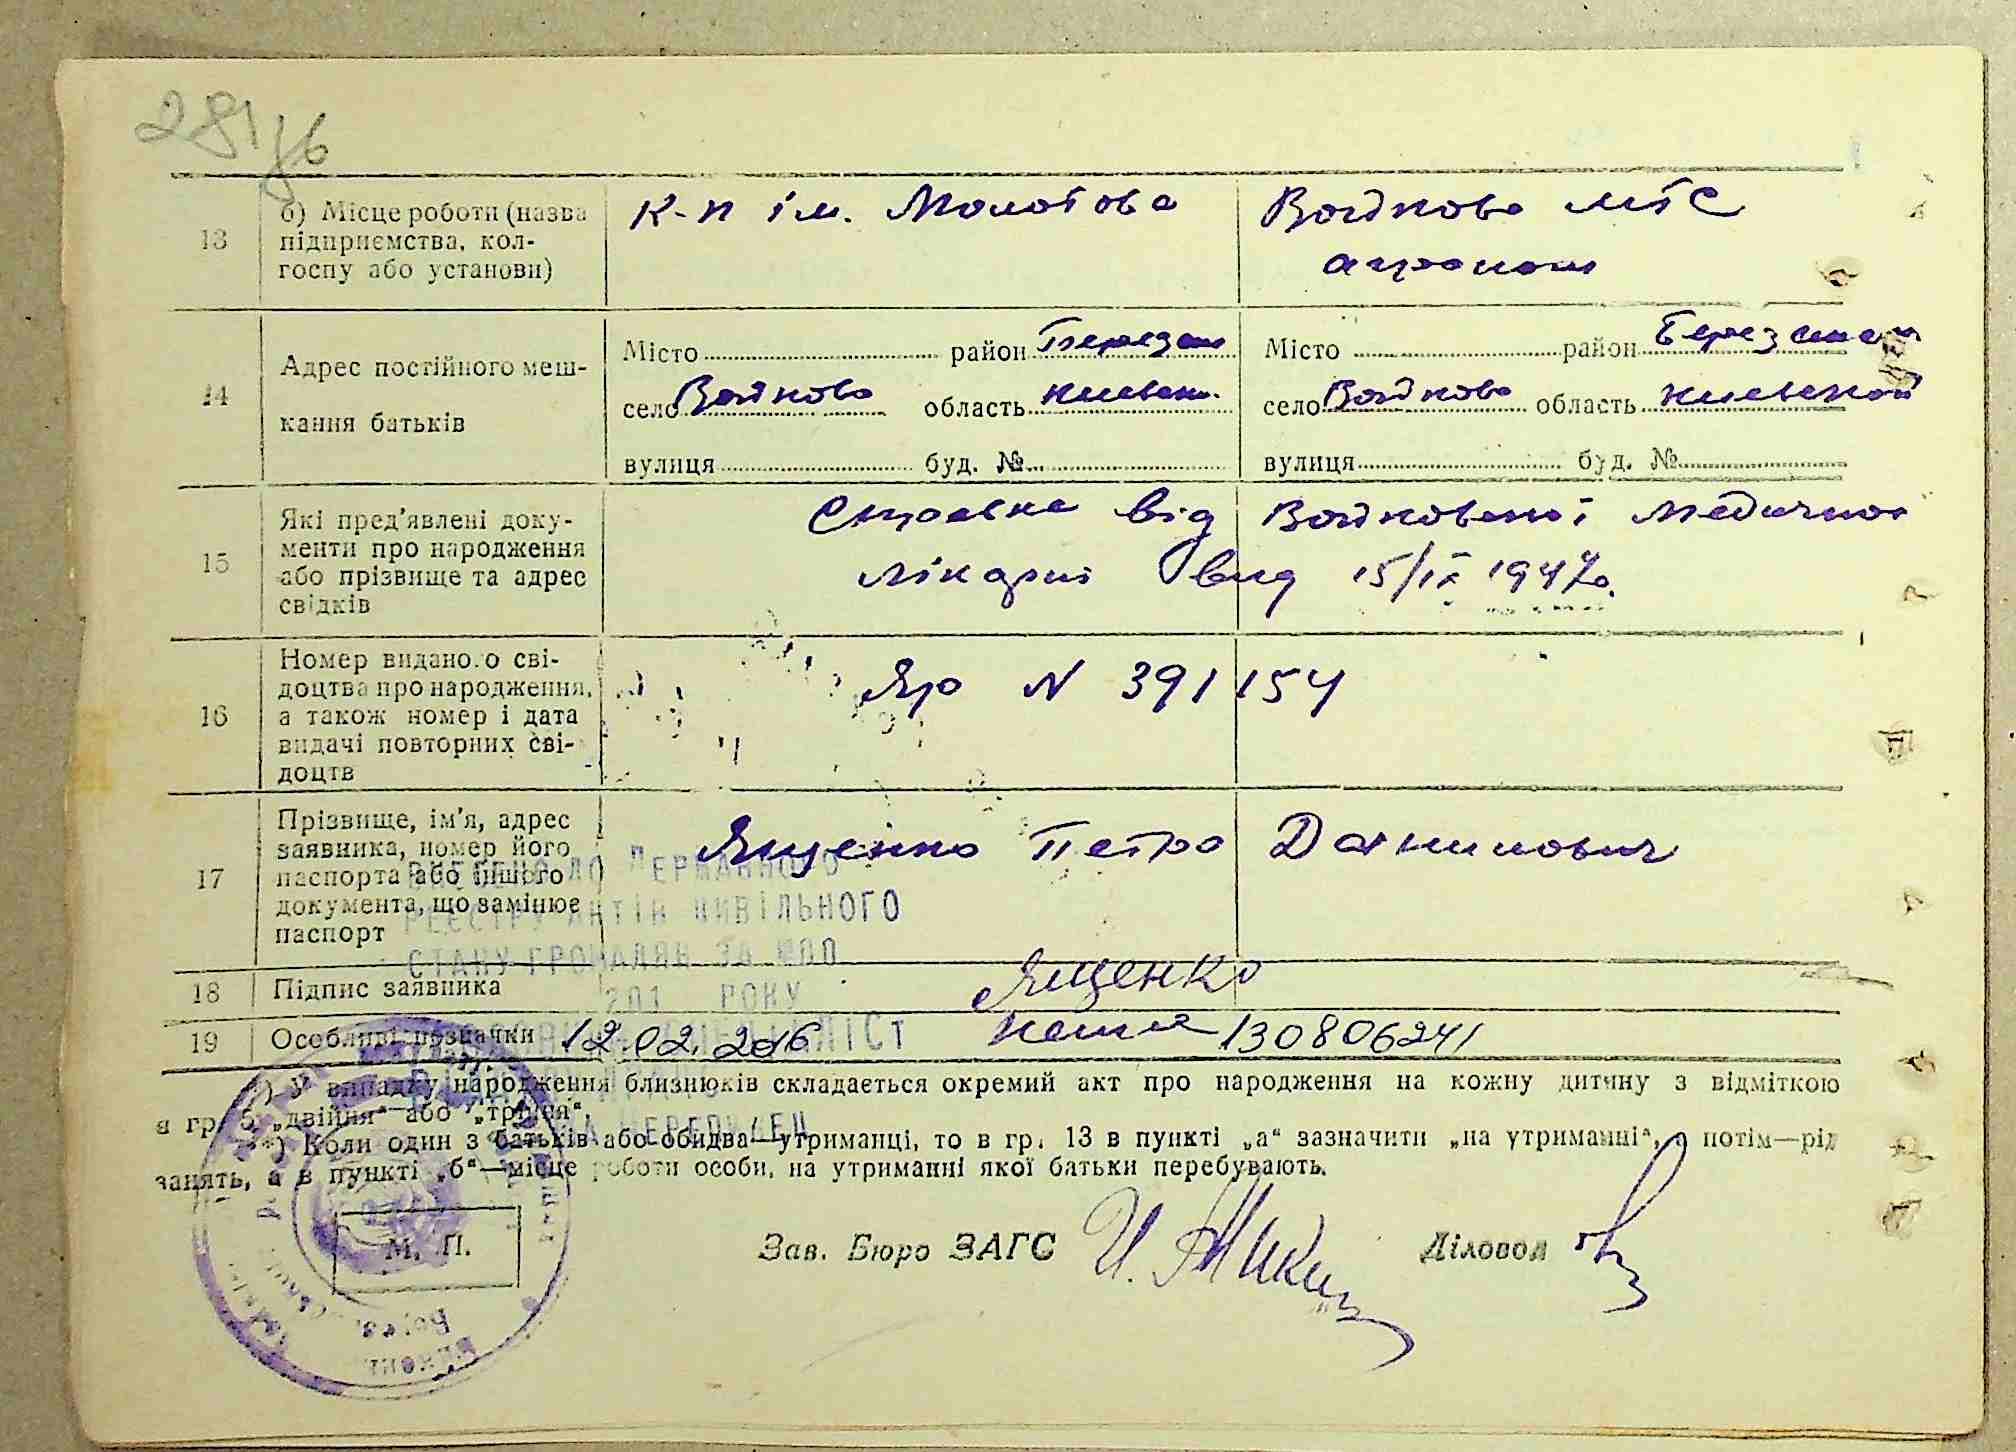 281
13 б) Місце роботи (назва підприємства, колгоспу або установи)
К-п ім. Молотова
Войкова МТС
агроном
14 Адрес постійного мешкання батьків
Місто район Березан
село Войкова область Киевск.
вулиця буд. №
Місто район Березанск
село Войкова область Киевской
вулиця буд. №
15 Які пред'явлені документи про народження або прізвище та адрес свідків
Справка від Войковської медичної
лікарні від 15/IX 1947р.
16 Номер виданого свідоцтва про народження, а також номер і дата видачі повторних свідоцтв
N 391154
17 Прізвище, ім'я, адрес заявника, номер його паспорта або іншого документа, що замінює паспорт
Ященко Петро Данилович
ВНЕСЕНО ДО ДЕРЖАВНОГО
РЕЄСТРУ АКТІВ ЦИВІЛЬНОГО
СТАНУ ГРОМАДЯН ЗА №ПП
201 РОКУ
18 Підпис заявника
Ященко
19 Особливі позначки 12.02.2016 130806241
*) У випадку народження близнюків складається окремий акт про народження на кожну дитину з відміткою
в гр. 5 „двійня“ або „трійня“.
**) Коли один з батьків або обидва—утриманці, то в гр. 13 в пункті „а“ зазначити „на утриманні“, а потім—рід
занять, а в пункті „б“—місце роботи особи, на утриманні якої батьки перебувають.
М. П.
Зав. Бюро ЗАГС
Діловод